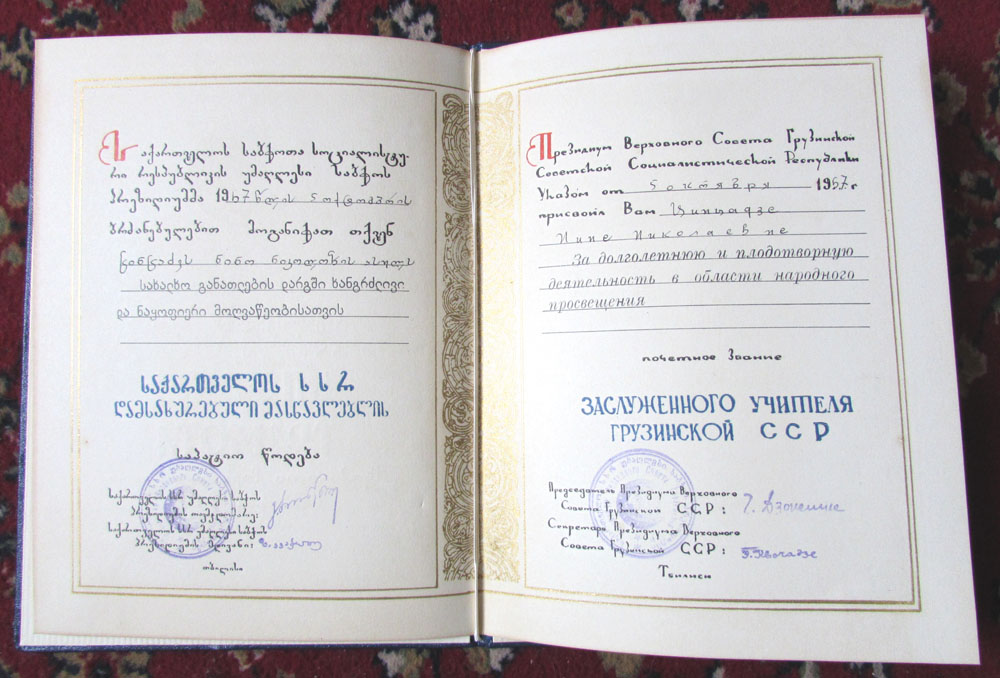 საქართველოს საბჭოთა სოციალისტუ-
რი რესპუბლიკის უმაღლესი საბჭოს
პრეზიდიუმმა 1967 წლის 5 ოქტომბრის
ბრძანებულებით მოგანიჭათ თქვენ
ცინცაძეს ნინო ნიკოლოზის ასულს
სახალხო განათლების დარგში ხანგრძლივი
და ნაყოფიერი მოღვაწეობისათვის
საქართველოს ს ს რ
დამსახურებული მასწავლებლის
საპატიო წოდება
საქართველოს სსრ უმაღლესი საბჭოს
პრეზიდიუმის თავმჯდომარე:
საქართველოს სსრ უმაღლესი საბჭოს
პრეზიდიუმის მდივანი:
თბილისი
Президиум Верховного Совета Грузинской
Советской Социалистической Республики
Указом от 5 октября 1967 г
присвоил Вам Цинцадзе
Нине Николаевне
За долголетнюю и плодотворную
деятельность в области народного
просвещения
почетное звание
ЗАСЛУЖЕННОГО УЧИТЕЛЯ
ГРУЗИНСКОЙ ССР
Председатель Президиума Верховного
Совета Грузинской ССР: Г. Дзоценидзе
Секретарь Президиума Верховного
Совета Грузинской ССР: Квачадзе
Тбилиси